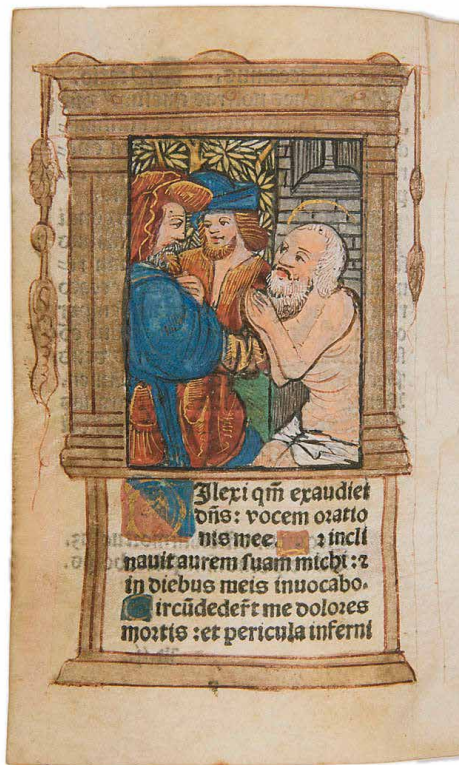 Dilexi qm̄ exaudiet
dn̄s: vocem oratio
nis mee. ⁊ incli
nauit aurem suam michi :⁊
in diebus meis inuocabo.
Circūdedert̄ me dolores
mortis : et pericula inferni